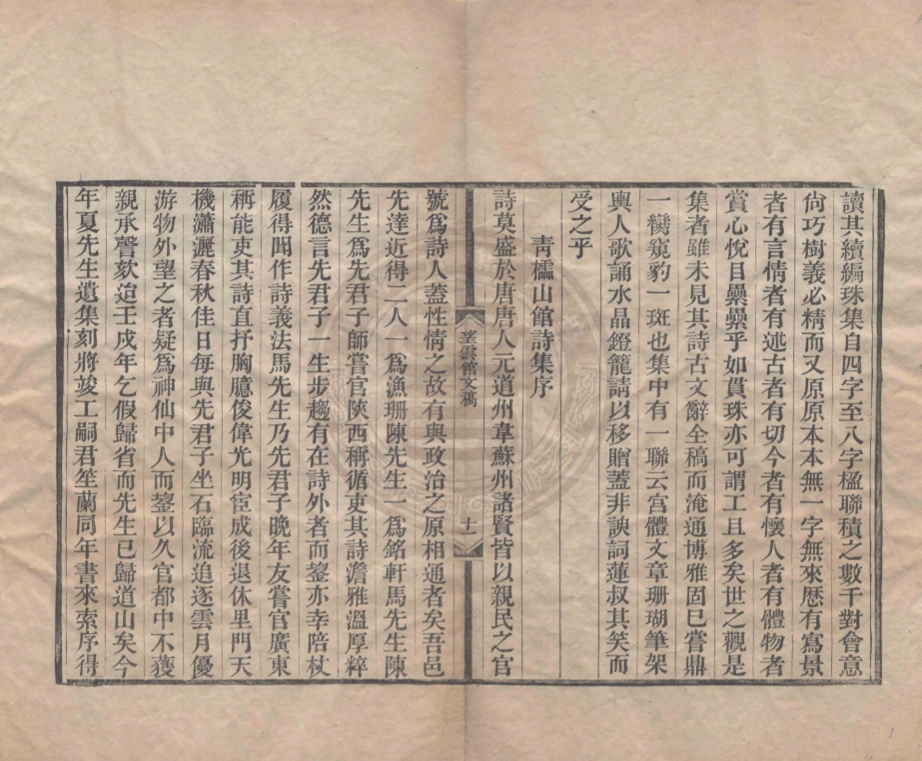 讀其續編珠集自四字至八字楹聯積之數千對會意
尙巧樹義必精而又原原本本無一字無來歷有寫景
者有言情者有述古者有切今者有懷人者有體物者
賞心悅目纍纍乎如貫珠亦可謂工且多矣世之觀是
集者雖未見其詩古文辭全稿而淹通博雅固已嘗鼎
一臠窺豹一斑也集中有一聯云宮體文章珊瑚筆架
輿人歌誦水晶鐙籠請以移贈蓋非諛詞蓮叔其笑而
受之乎
靑櫺山館詩集序
詩莫盛於唐唐人元道州韋蘇州諸賢皆以親民之官
雲館文稿
十一
號爲詩人蓋性情之故有與政治之原相通者矣吾邑
先達近得二人一爲漁珊陳先生一爲銘軒馬先生陳
先生爲先君子師嘗官陝西稱循吏其詩澹雅溫厚粹
然德言先君子一生步趨有在詩外者而鋆亦幸陪杖
履得聞作詩義法馬先生乃先君子晚年友嘗官廣東
稱能吏其詩直抒胸臆俊偉光明宦成後退休里門天
機瀟灑春秋佳日每與先君子坐石臨流追逐雲月優
游物外望之者疑爲神仙中人而鋆以久官都中不獲
親承謦欬迨壬戌年乞假歸省而先生已歸道山矣今
年夏先生遺集刻將竣工嗣君笙蘭同年書來索序得